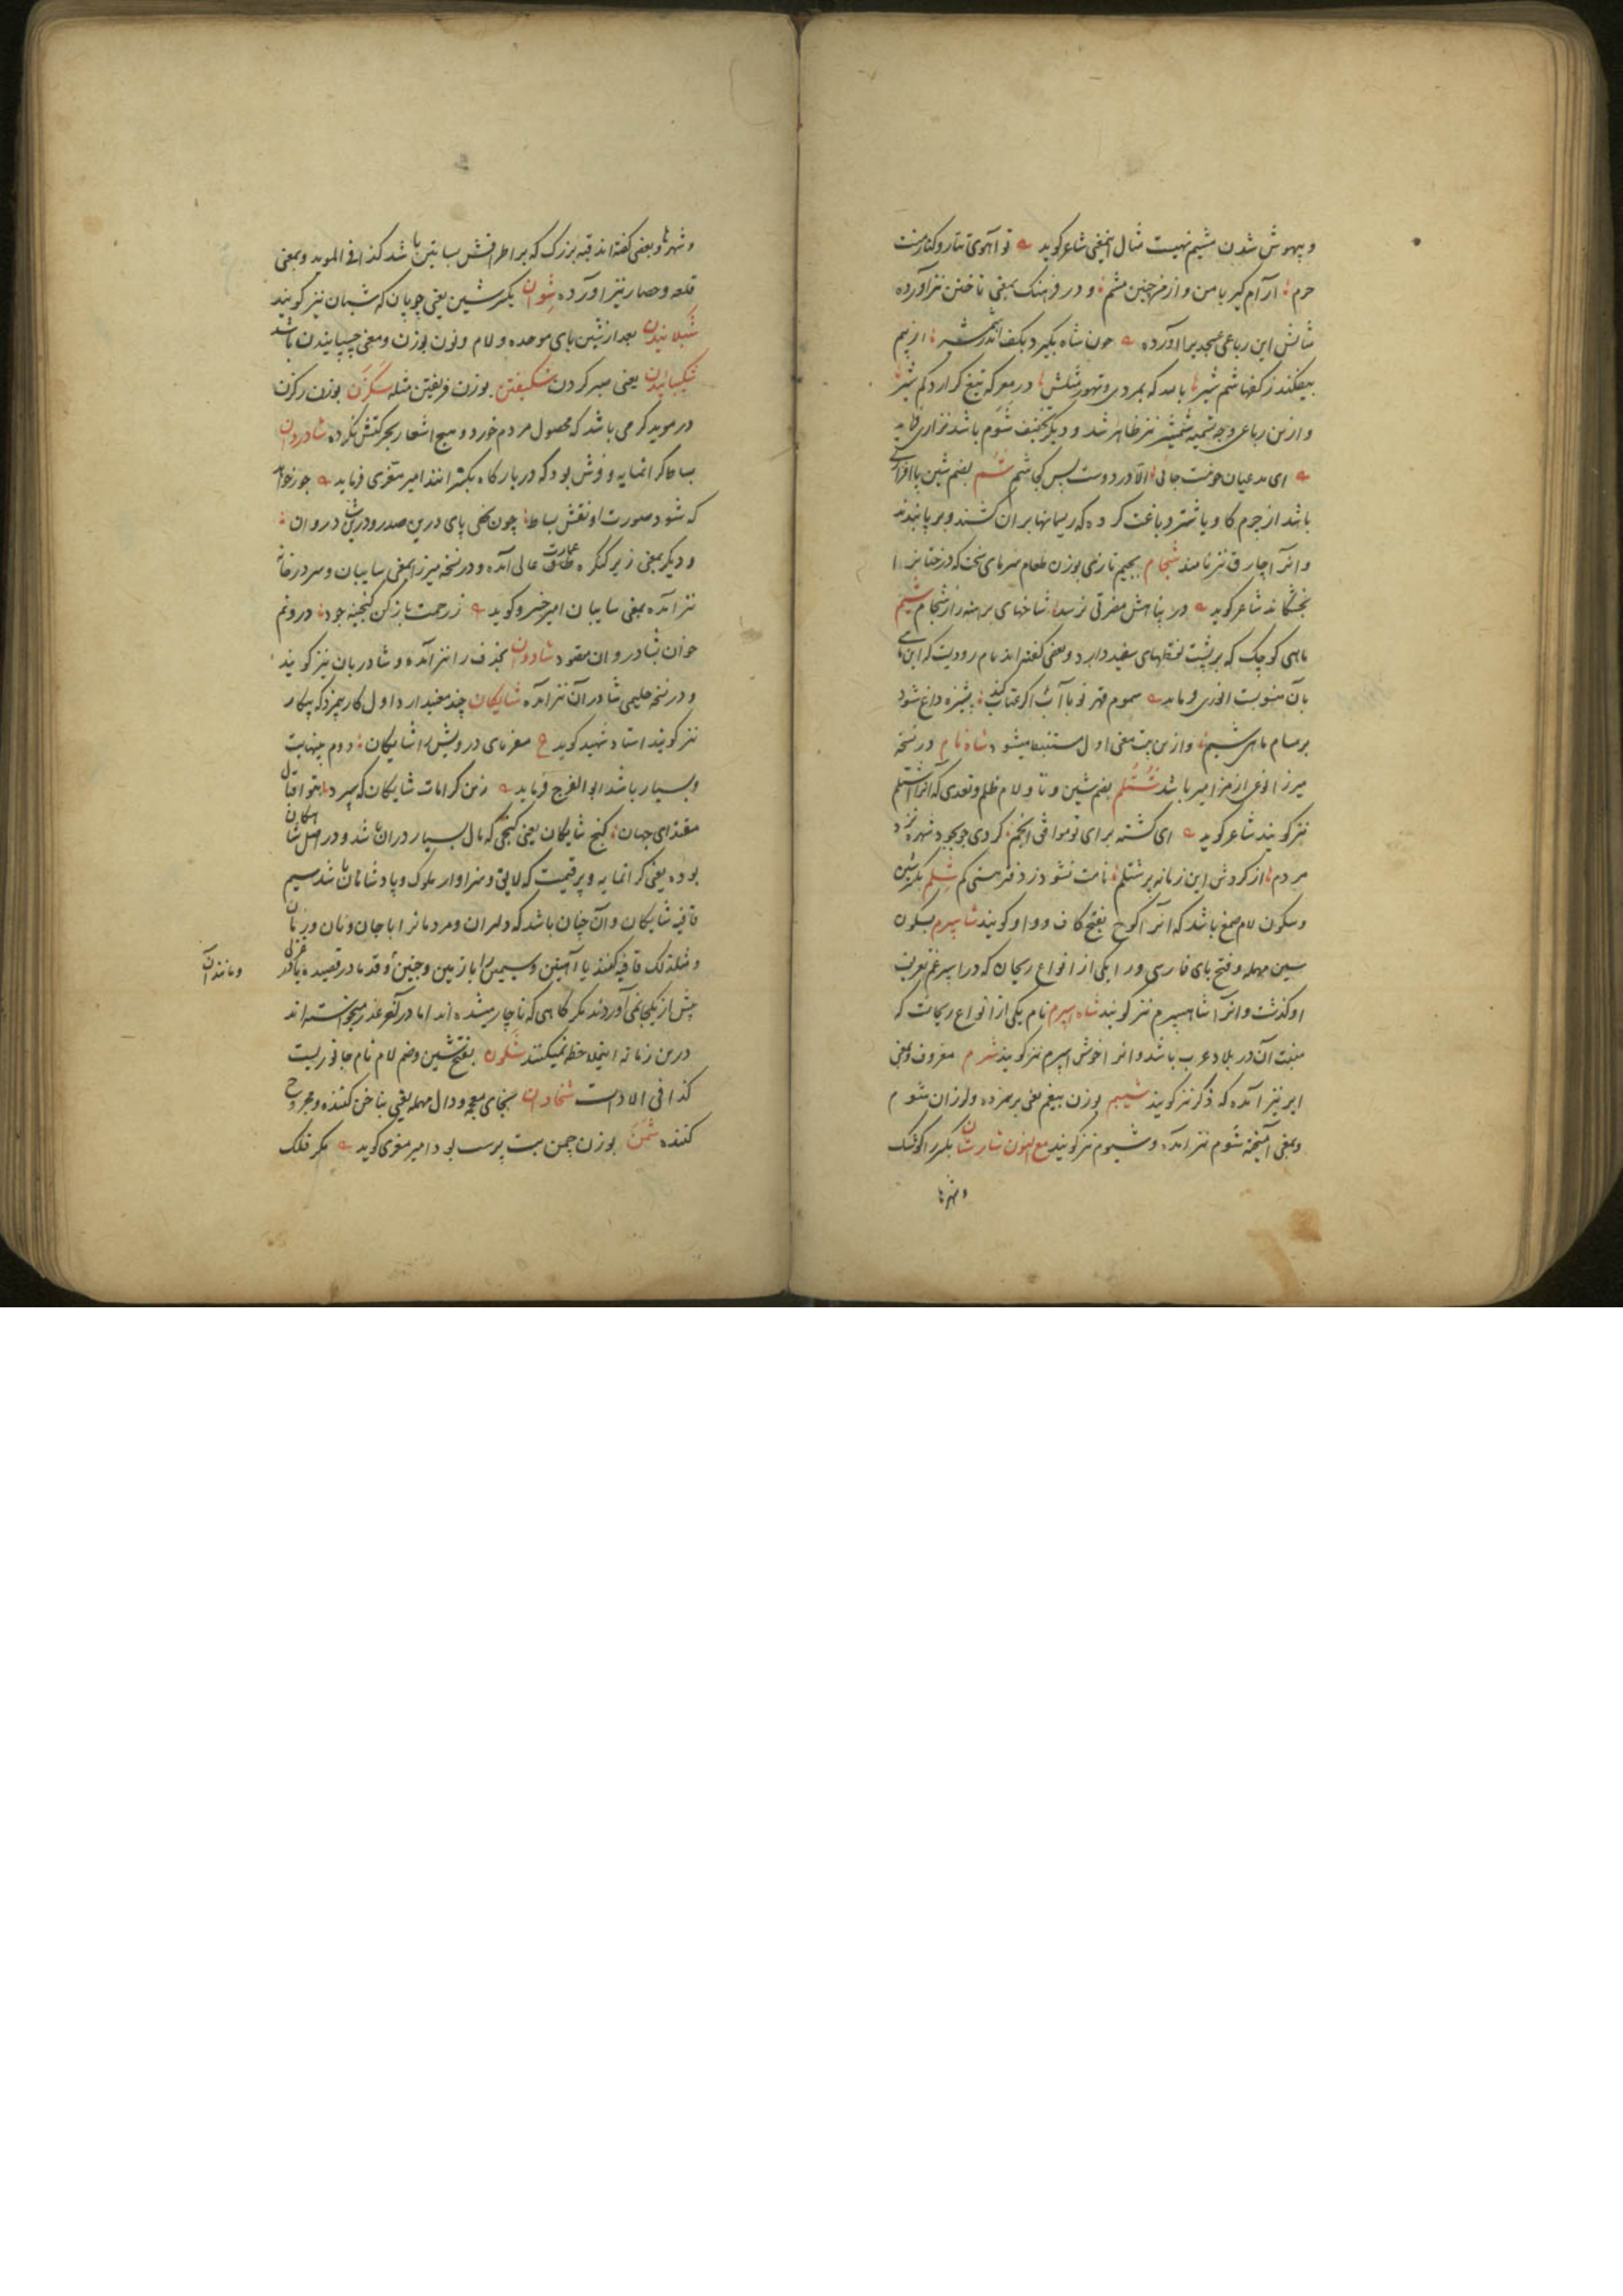 و بیهوش شدن شیم نهیب مثال این معنی شاعر گوید تو آهوی تتار و کنار منت
حرم آرام گیر با من و از من چنین مشم و در فرهنک بمعنی تاختن نیز آورده
مثالش این رباعی عسجدی را آورده چون شاه بگیرد بکف اندر شمشیر از بیم
بیفکند ز کفها شم شیر باشد که بمردی و تهور مثلش در معرکه تیغ گزارد کم شیر
و ازین رباعی وجه تسمیه شمشیر نیز ظاهر شد و دیگر بتخفیف شوم باشد نزاری فرماید
ای مدعیان خوشت جائی الا در دوست پس کجا شم شم بضم شین پاافزاری
باشد از چرم گاو یا شتر دباغت کرده که ریسمانها بر آن کشند و بر پا بندند
و انرا چارق نیز نامند شجام بجیم تازی بوزن طعام سرمای سخت که درختانرا
بخشکاند شاعر گوید در پناهش مضرتی نرسد شاخهای برهنه را ز شجام شیم
ماهی کوچک که بر پشت نقطهای سفید دارد و بعضی گفته اند نام رودیست که این ماهی
بآن منسوبست انوری فرماید سموم قهر تو با آب اگر عتاب کند پشیزه داغ شود
بر مسام ماهی شیم و ازین بیت معنی اول مستنبط میشود شاه نام در نسخه
میرزا نوعی از مزامیر باشد شتلم بضم شین و تا و لام ظلم و تعدی که انرا اشتلم
نیز گویند شاعر گوید ای گشته برای تو موافق انجم کردی چو بجود شهره نزد
مردم از گردش این زمانه پر شتلم نامت نشود ز دفتر هستی کم شلم بکسر شین
و سکون لام صمغ باشد که انرا کوج بفتح کاف و واو گویند شاسپرم بسکون
سین مهمله و فتح بای فارسی و را یکی از انواع ریحان که در اسپرغم تعریف
او گذشت و انرا شاهسپرم نیز گویند شاه اسپرم نام یکی از انواع ریحانست که
منبت آن در بلاد عرب باشد و انرا خوش اسپرم نیز گویند شرم معروف و بمعنی
ابر نیز آمده که ذکر نیز گویند شیبم بوزن بیغم یعنی برهم زده و لرزان شوم
و بمعنی آمیخته شوم نیز آمده و شیبوم نیز گویند مع النون شارستان بکسر را کوشک
و شهرها
و شهرها و بعضی گفته اند قبه بزرگ که بر اطرافش بساتین باشد کذا فی الموید و بمعنی
قلعه و حصار نیز آورده شوان بکسر شین یعنی چوپان که شبان نیز گویند
شبلانیدن بعد از شین بای موحده و لام و نون بوزن و معنی چسپانیدن باشد
شکیبائیدن یعنی صبر کردن شکیفتن بوزن فریفتن مثله سگزن بوزن رگزن
در موید کرمی باشد که محصول مردم خورد و هیچ اشعار بحرکتش نکرده شادروان
بساط گرانمایه و فرش بود که در بارگاه بگسترانند امیر معزی فرماید
که شود صورت او نقش بساط چون نهی پای درین صدر و درین شادروان
و دیگر بمعنی زیر کنگره عمارت عالی آمده و در نسخه میرزا بمعنی سایبان و سر در خانه
نیز آمده بمعنی سایبان امیر خسرو گوید ز رحمت باز کن گنجینه جود درونم
خوان بشادروان مقصود شادوران بحذف را نیز آمده و شادربان نیز گویند
و در نسخه حلیمی شادران نیز آمده شایکان چند معنی دارد اول کار بیمزد که بیکار
نیز گویند استاد شهید گوید مفرمای درویش را شایکان دوم بینهایت
و بسیار باشد ابو الفرج فرماید زین کرامات شایکان که سپرد بتو اقبال
مقتدای جهان گنج شایکان یعنی گنجی که مال بسیار در ان باشد و در اصل شاهکان
بوده یعنی گرانمایه و پر قیمت که لایق و سزاوار ملوک و پادشاهان باشد سیم
قافیه شایکان و آن چنان باشد که دلبران و مردمانرا با جان و نان و زنان
و مثلذلک قافیه کنند یا آهنین و سیمین را با زمین و جنین و قدما در قصیده یا غزلی
و مانند آن
پیش از یکجا نمی آوردند مگر گاهی که ناچار میشده اند اما در آخر عذر میخواسته اند
درین زمانه اینملاحظه نمیکنند شلون بفتح شین و ضم لام نام جانوریست
کذا فی الادات شخاوان بخای معجمه و دال مهمله یعنی بناخن کننده و مجروح
کننده شمن بوزن چمن بت پرست بود امیر معزی گوید مگر فلک